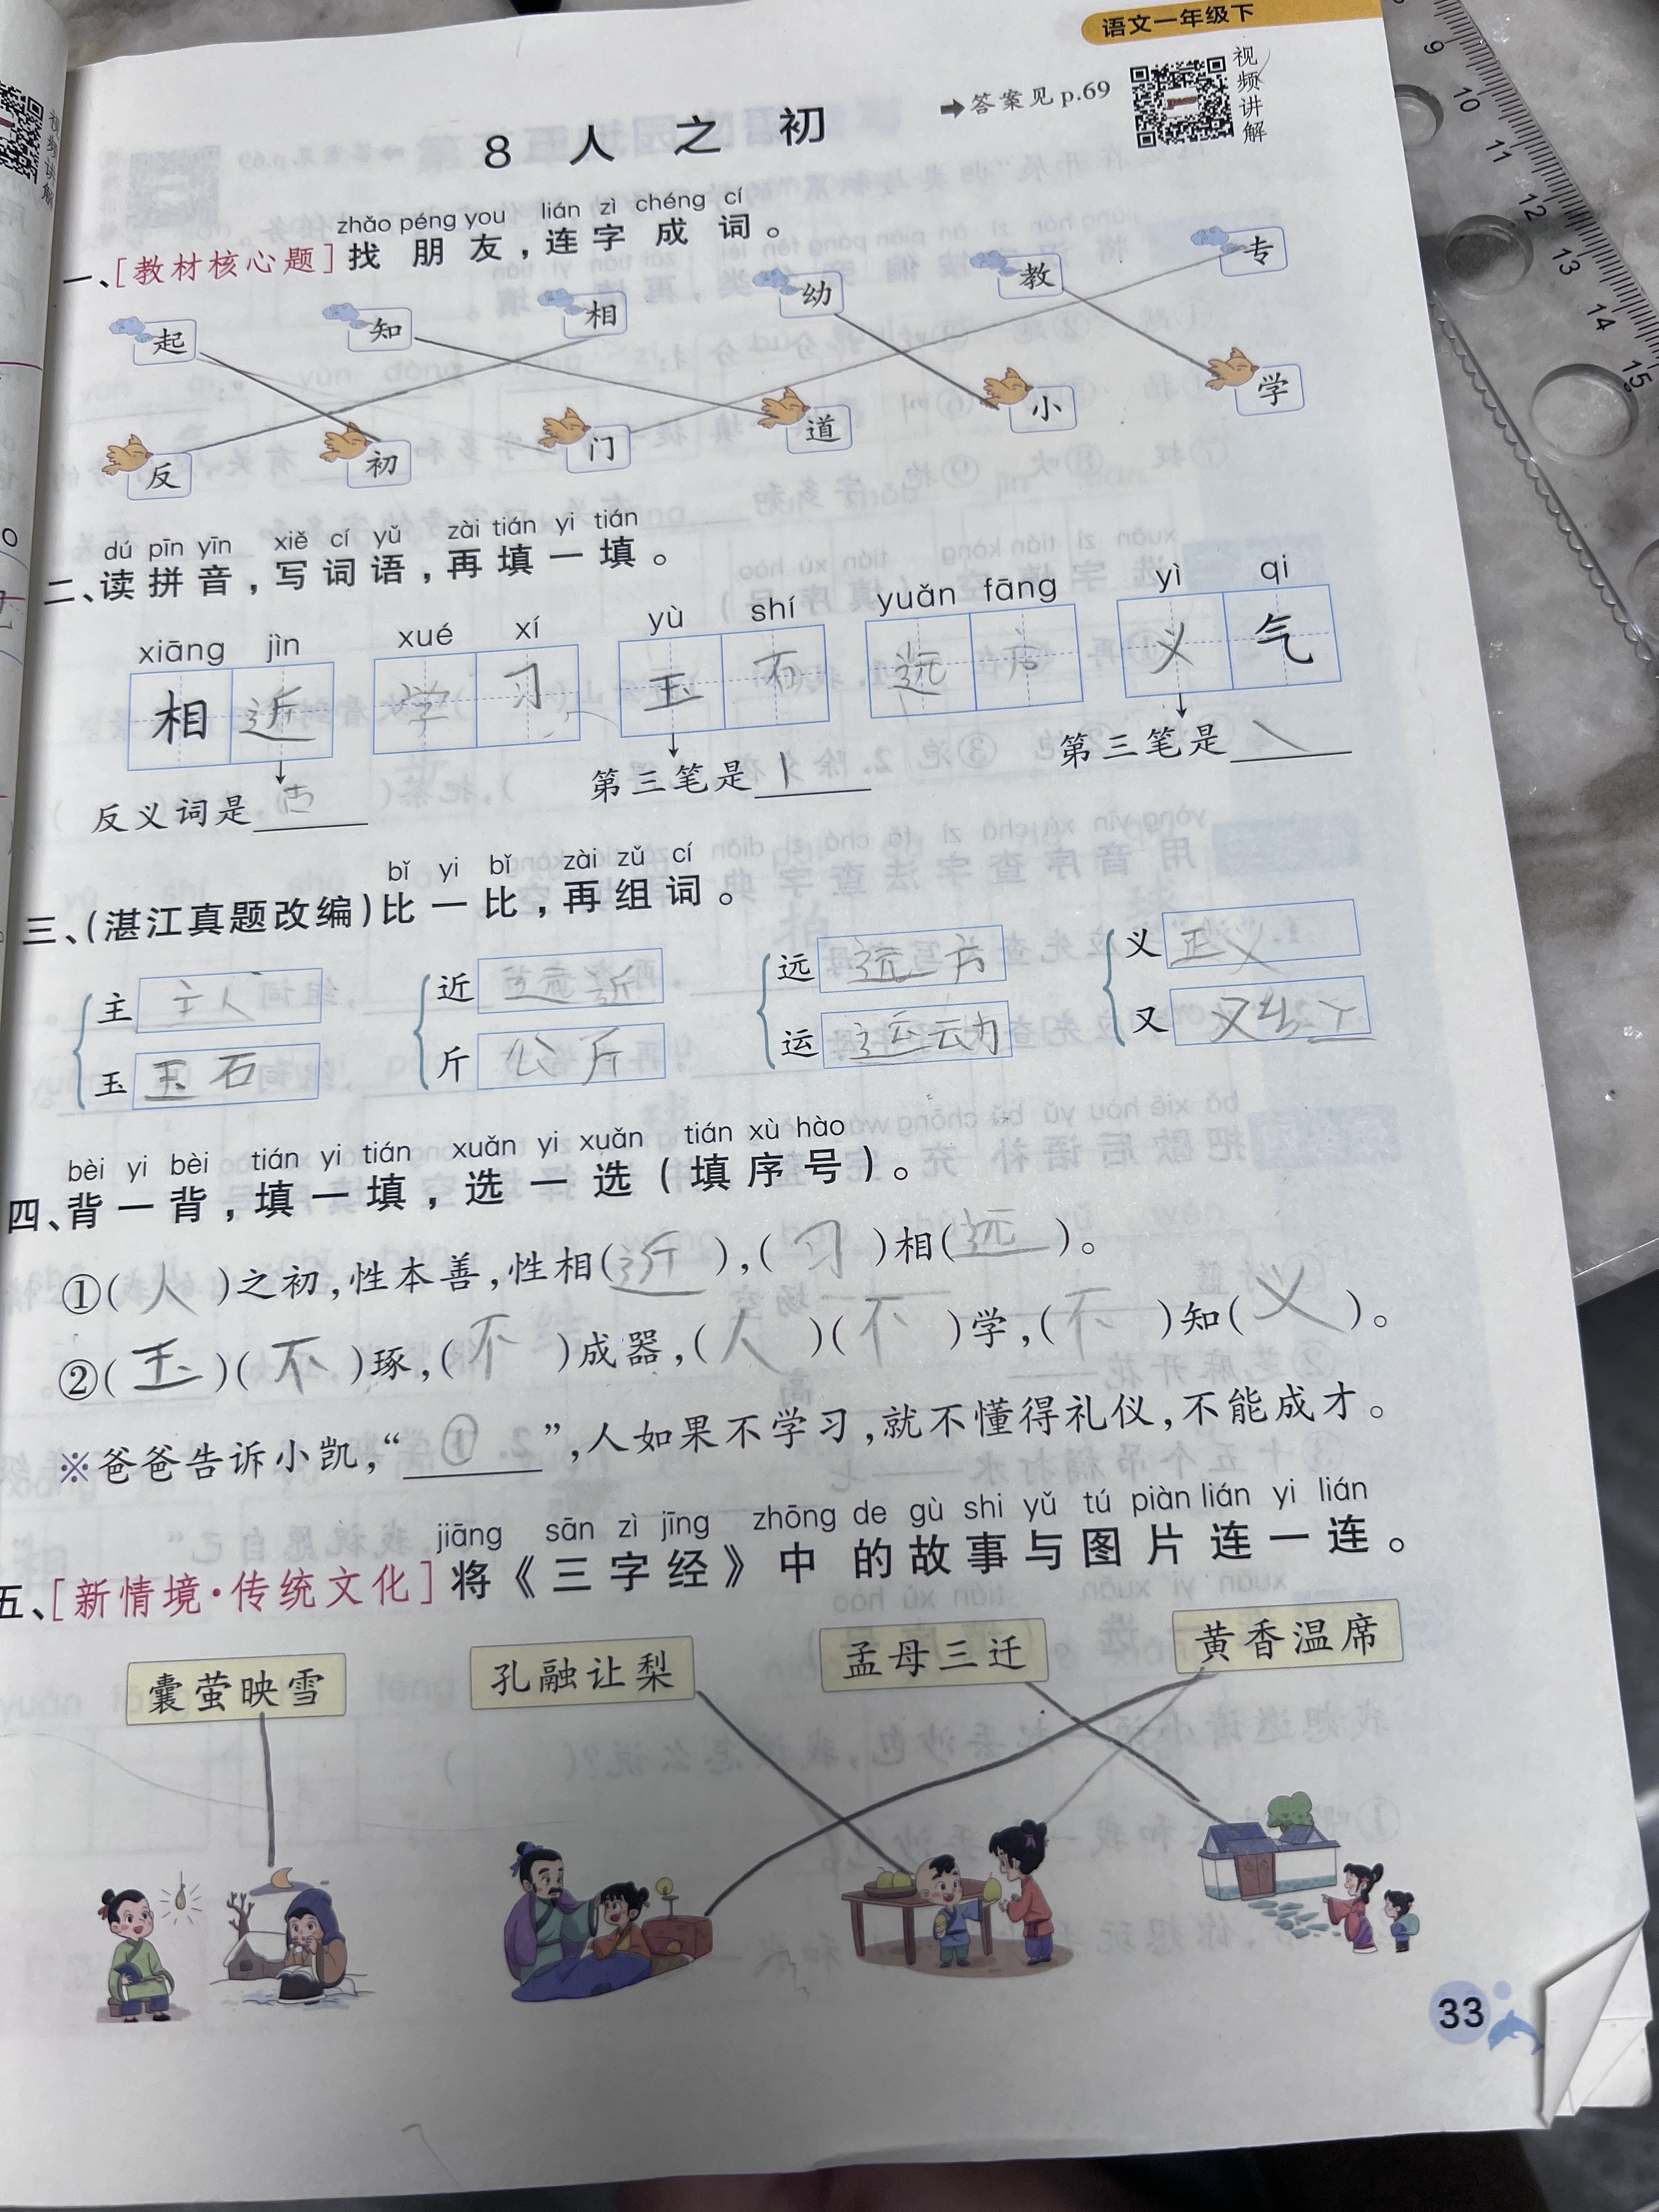 语文一年级下
8 人 之 初
➡答案见p.69
视频讲解
zhǎo péng you lián zì chéng cí
一、[教材核心题]找朋友,连字成词。
起 知 相 幼 教 专
反 初 门 道 小 学
dú pīn yīn xiě cí yǔ zài tián yi tián
二、读拼音,写词语,再填一填。
xiāng jìn xué xí yù shí yuǎn fāng yì qi
相近 学习 玉石 远方 义气
反义词是 第三笔是丨 第三笔是㇏
bǐ yi bǐ zài zǔ cí
三、(湛江真题改编)比一比,再组词。
主 主人 近 远近 远 远方 义 正义
玉 玉石 斤 公斤 运 运动 又
bèi yi bèi tián yi tián xuǎn yi xuǎn tián xù hào
四、背一背,填一填,选一选(填序号)。
①(人)之初,性本善,性相(近),(习)相(远)。
②(玉)(不)琢,(不)成器,(人)(不)学,(不)知(义)。
※爸爸告诉小凯,“①”,人如果不学习,就不懂得礼仪,不能成才。
jiāng sān zì jīng zhōng de gù shi yǔ tú piàn lián yi lián
五、[新情境·传统文化]将《三字经》中的故事与图片连一连。
囊萤映雪 孔融让梨 孟母三迁 黄香温席
33